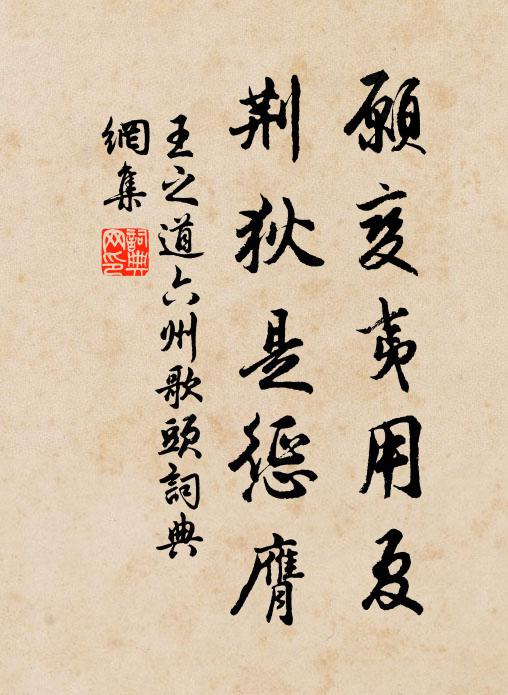 願变夷用夏
荆狄是惩膺
王之道六州歌頭詞典
網集
詞典
网印